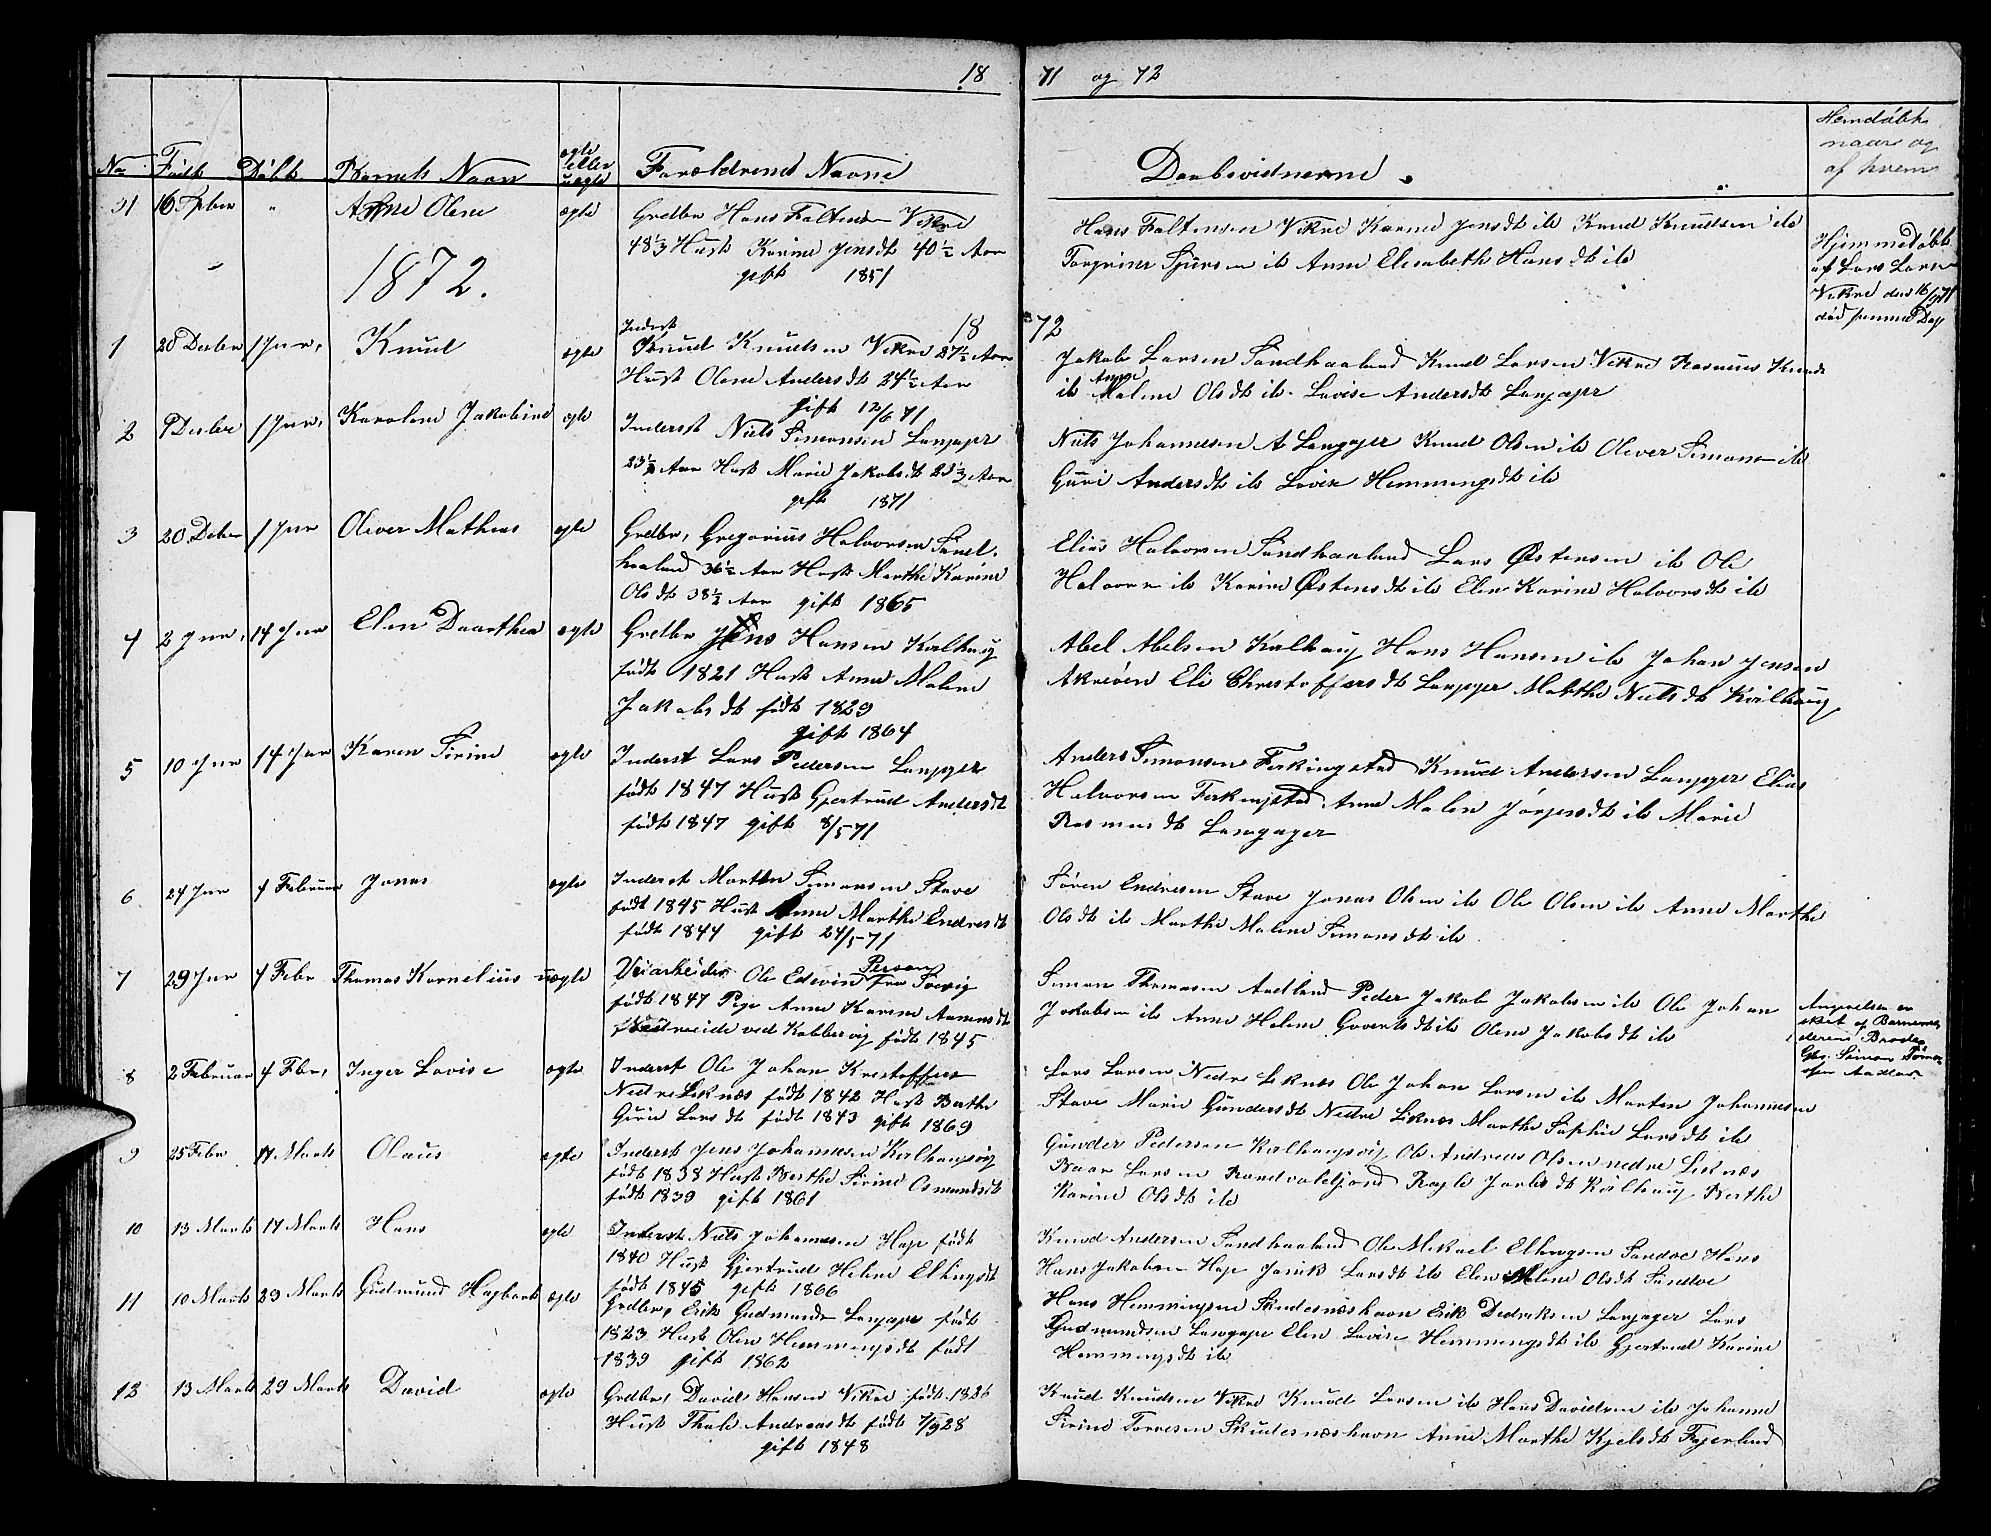 18 71 og 72
No Født Døbt Barnets Navn ægte eller uægte Forældrenes Navne Daabsvidnerne. Hemdøbt naar og af hvem
31 16 Spbr " Anne Olene ægte Grdbr Hans Faltensen Vikre
48⅓ Hust Karine Jensdt 40½ Aar
gift 1851
Hans Faltensen Vikre Karine Jensdt ib Knud Knudsen ib
Torgrine Sjursen ib Anne Elisabeth Hansdt ib
Hjemmedøbt
af Lars Larsen
Vikre den 16/9 71
død samme Dag
1872.
18 72
1 28 Decbr 1 Jnr, Knud ægte Inderst
Knud Knudsen Vikre 27½ Aar
Hust Olene Andersdt 24½ Aar
gift 12/6 71
Jakob Larsen Sandhaaland Knud Larsen Vikre Rasmus Knuds
ib Anne Malene Olsdt ib. Lovise Andersdt Langager
2 9 Decbr 1 Jnr, Karolene Jakobine ægte Inderst Niels Simonsen Langager
23½ Aar Hust Marie Jakobsdt 23⅓ Aar
gift 1871
Niels Johannesen A Langager Knud Olsen ib Oliver Simonsen ib
Guri Andersdt ib Lovise Hemmingsdt ib
3 20 Decbr 1 Jnr Oliver Mathias ægte Grdbr, Gregorius Halvorsen Sand-
haaland 36½ Aar Hust Marthe Karine
Olsdt 38½ Aar gift 1865
Elias Halvorsen Sandhaaland Lars Østensen ib Ole
Halvorsen ib Karine Østensdt ib Elen Karine Halvorsdt ib
4 2 Jnr, 14 Jnr Elen Daarthea ægte Grdbr Jens Hansen Kvalhaug
født 1821 Hust Anne Malene
Jakobsdt født 1829
gift 1864
Abel Abelsen Kvalhaug Hans Hansen ib Johan Jensen
Akreøen Eli Christoffersdt Langager Malthe Nielsdt Kvalhaug
5 10 Jnr 14 Jnr Karen Sirine ægte Inderst Lars Pedersen Langager
født 1847 Hust Gjertrud Andersdt
født 1847 gift 8/5 71
Anders Simonsen Ferkingstad Knud Andersen Langager Elias
Halvorsen Ferkingstad Anne Malen Jørgensdt ib Marie
Rasmusdt Langager
6 24 Jnr 4 Februar Jonas ægte Inderst Marthn Simonsen Stave
født 1845 Hust Anne Marthe Endresdt
født 1844 gift 24/5 71
Søren Endresen Stave Jonas Olsen ib Ole Olsen ib Anne Marthe
Olsdt ib Marthe Malene Simonsdt ib
7 29 Jnr 4 Febr Thomas Kornelius uægte Veiarbeider Ole Edevin Person fra Soevig
født 1847 Pige Anne Karine Aamundsdt
ved Kobbervig født 1845
Simon Thomasen Aadland Peder Jakob Jakobsen ib Ole Johan
Jakobsen ib Anne Helene Govertsdt ib Olene Jakobsdt ib
Angivelsen er
sket af Barnemo-
derens Broder
Gbr. Simon Tomas-
sen Aadland
8 2 Februar 4 Fbr, Inger Lovise ægte Inderst Ole Johan Krestoffers
Nedre Liknes født 1842 Hust Berthe
Gurie Larsdt født 1843 gift 1869
Lars Larsen Nedre Liknes Ole Johan Larsen ib Marten Johannesen
Stave Marie Gundersdt Nedre Liknes Marthe Sophie Larsdt ib
9 25 Febr 17 Marts Olaus ægte Inderst Jens Johannesen Kvalhaugsvig
født 1838 Hust Berthe Sirine Osmundsdt
født 1839 gift 1861
Gunder Pedersen Kvalhaugsvig Ole Andreas Olsen nedre Liknæs
Baar Larsen Ragle Jonsdt Kvalhaug Berthe
Karine Olsdt ib
10 13 Marts 17 Marts Hans ægte Inderst Niels Johannesen Hage født
1840 Hust Gjertrud Helene Ellingsdt
født 1845 gift 1866
Knud Andersen Sandhaaland Ole Mikael Ellingsen Sandve Hans
Hans Jakobsen Hage Janik Larsdt ib Elen Malene Olsdt Sandve
11 10 Marts 23 Marts Gudmund Hagbart ægte Grdbr, Erik Gudmundsen Langager født
1823 Hust Olene Hemmingsdt født
1839 gift 1862
Hans Hemmingsen Skudesnæshavn Erik Dedriksen Langager Lars
Gudmundsen Langager Elen Lovise Hemmingsdt ib Gjertrud Karine
Hemmingsdt ib
12 13 Marts 29 Marts David ægte Grdbr, David Hansen Vikre født 1826
Hust Thale Andreasdt født 7/9 28
gift 1848
Knud Knudsen Vikre Knud Larsen ib Hans Davidsen ib Johanne
Sirine Torresen Skudesnæshavn Anne Marthe Kjelsdt Fagerland